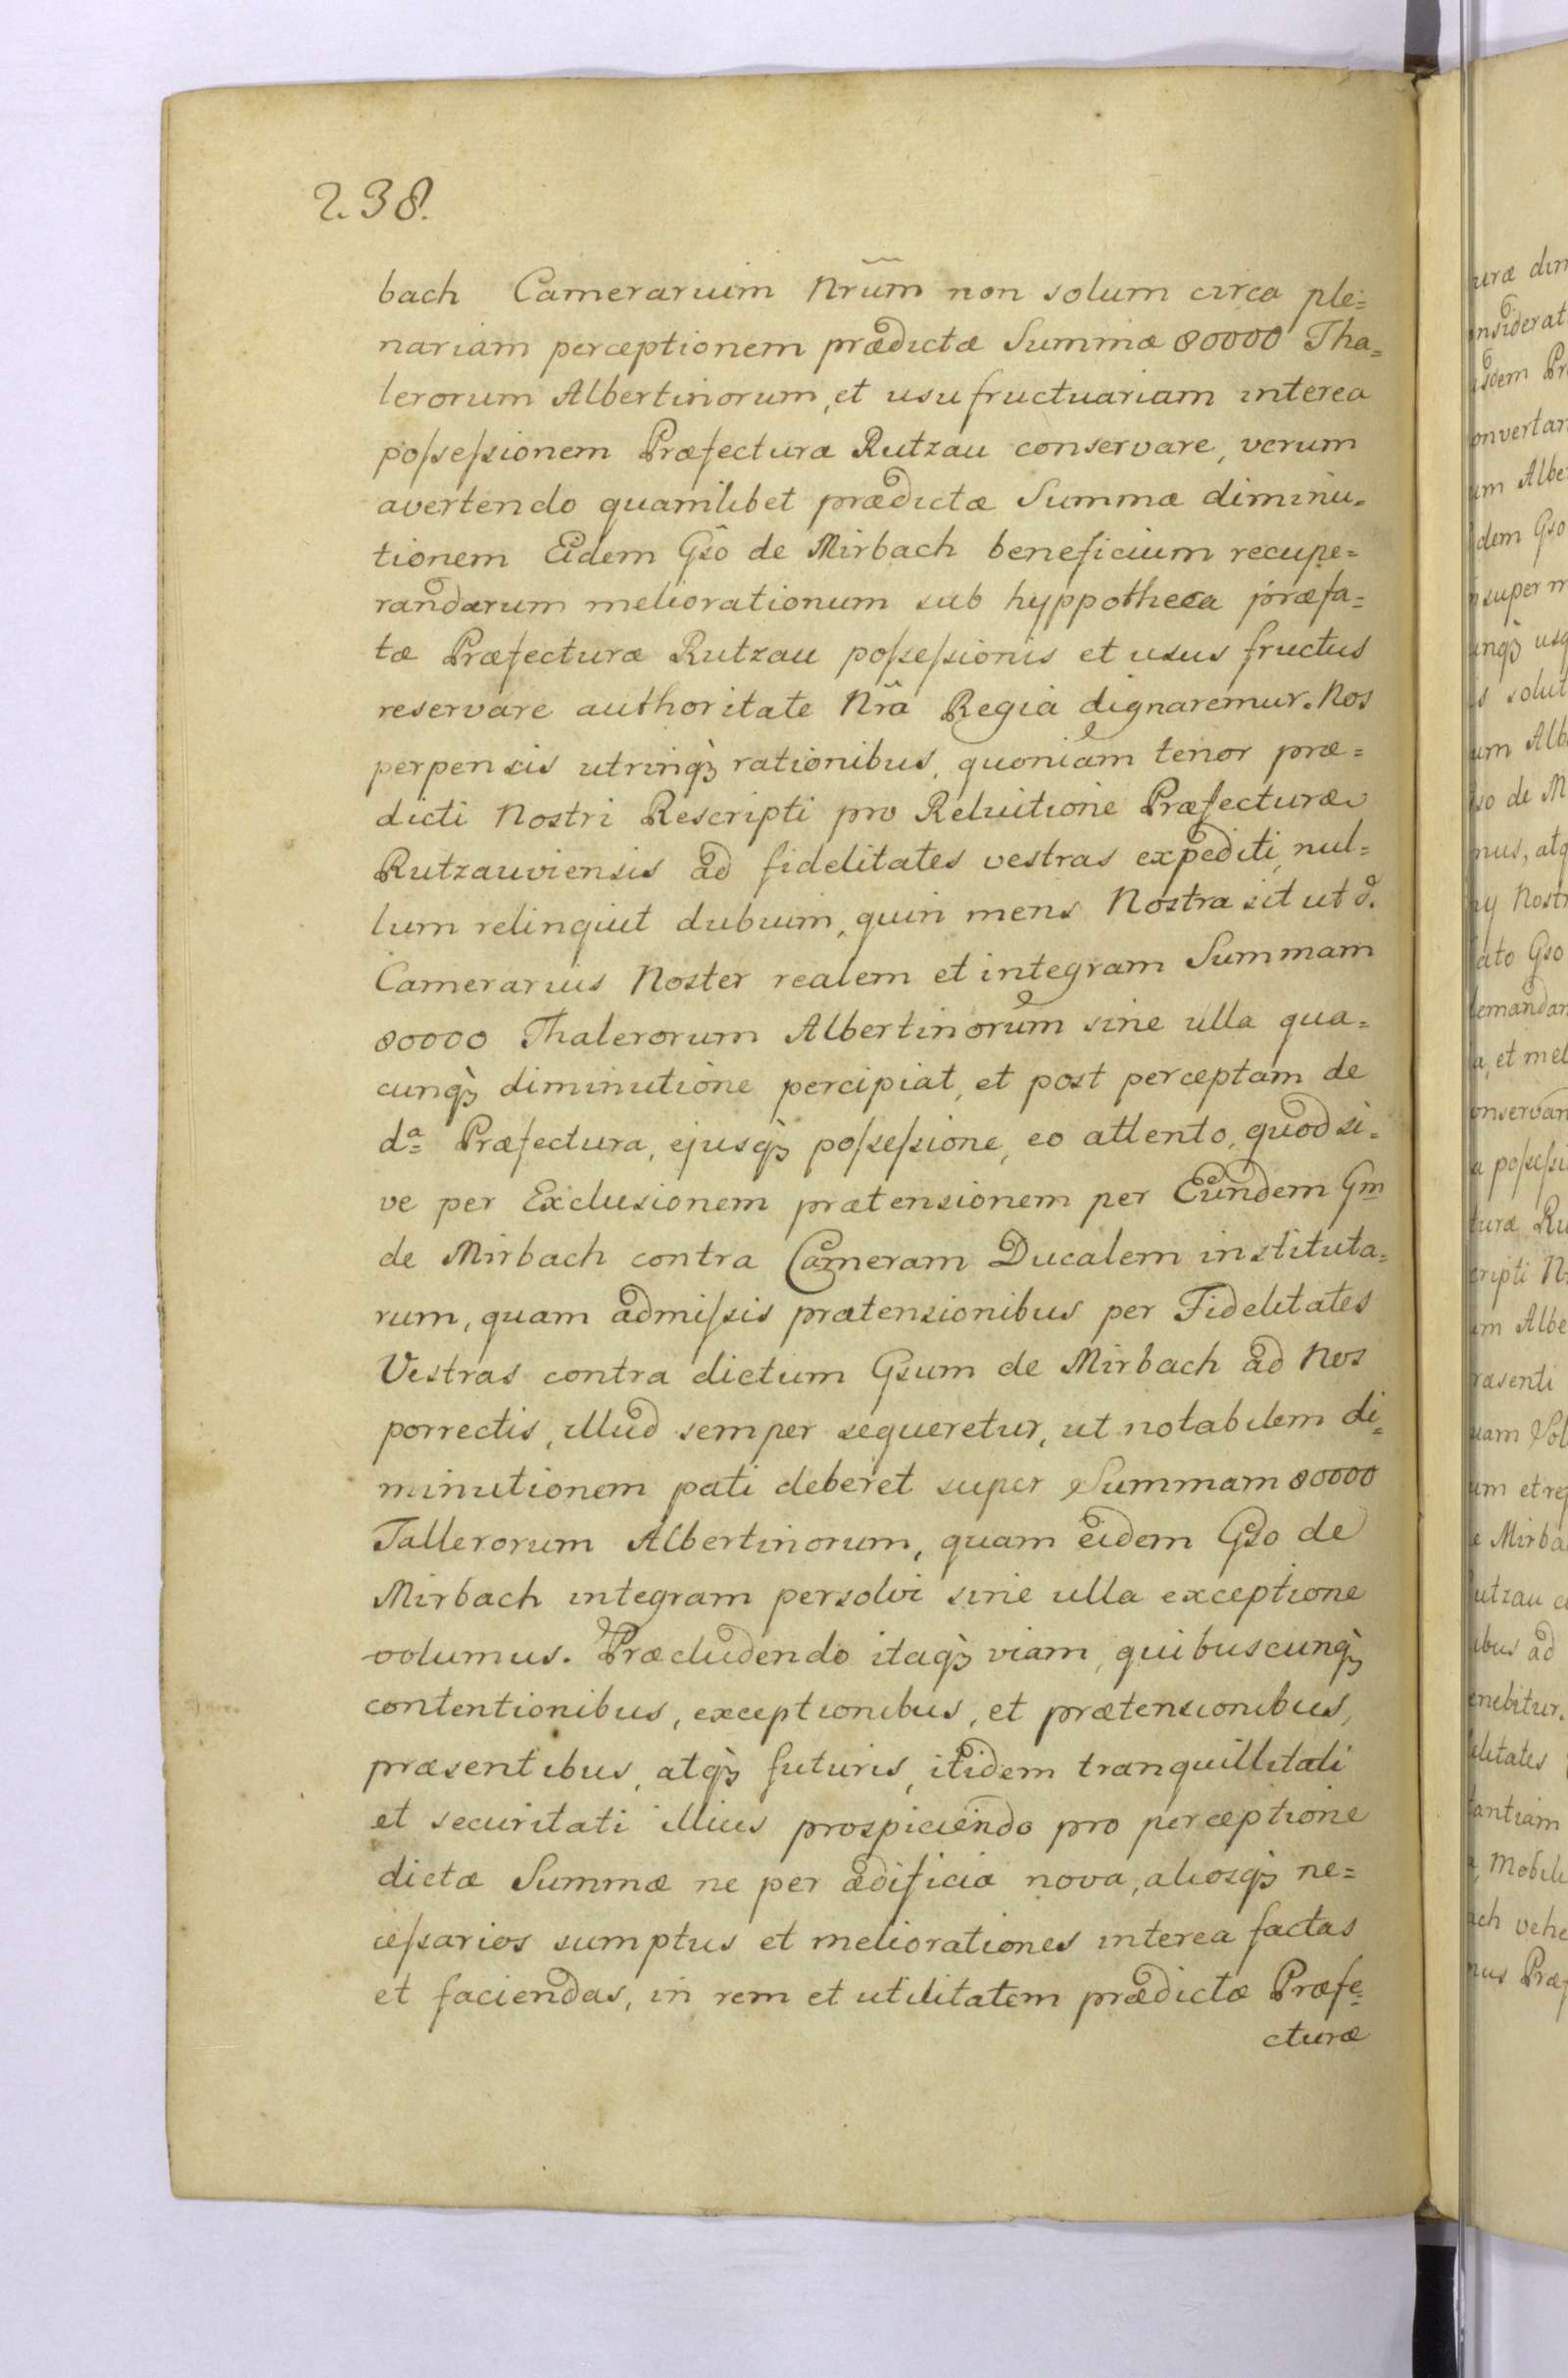 238.
bach Camerarium Nrũm non solum circa ple=
nariam perceptionem prædictæ Summæ 80000 Tha=
lerorum Albertinorum, et usufructuariam interea
poſseſsionem Præfecturæ Rutzau conservare, verum
avertendo quamlibet prædictæ Summæ diminu=
tionem Eidem Gso de Mirbach beneficium recupe=
randarum meliorationum sub hyppotheca præfa=
tæ Præfecturæ Rutzau poſseſsionis et usus fructus
reservare authoritate Nrã Regia dignaremur. Nos
perpensis utrinqꝫ rationibus, quoniam tenor præ=
dicti Nostri Rescripti pro Reluitione Præfecturæ
Rutzauviensis ad fidelitates vestras expediti, nul=
lum relinquit dubium, quin mens Nostra sit ut d.
Camerarius Noster realem et integram Summam
80000 Thalerorum Albertinorum sine ulla qua=
cunqꝫ diminutione percipiat, et post perceptam de
dª Præfectura, ejusqꝫ poſseſsione, eo attento, quod si=
ve per Exclusionem prætensionem per Eundem Gm
de Mirbach contra Cameram Ducalem instituta=
rum, quam admiſsis prætensionibus per Fidelitates
Vestras contra dictum Gsum de Mirbach ad Nos
porrectis, illud semper sequeretur, ut notabilem di=
minutionem pati deberet super Summam 80000
Tallerorum Albertinorum, quam eidem Gso de
Mirbach integram persolvi sine ulla exceptione
volumus. Præcludendo itaqꝫ viam, quibuscunqꝫ
contentionibus, exceptionibus, et prætensionibus,
præsentibus, atqꝫ futuris, itidem tranquillitati
et securitati illius prospiciendo pro perceptione
dictæ Summæ ne per ædificia nova, aliosqꝫ ne=
ceſsarios sumptus et meliorationes interea factas
et faciendas, in rem et utilitatem prædictæ Præfe=
cturæ